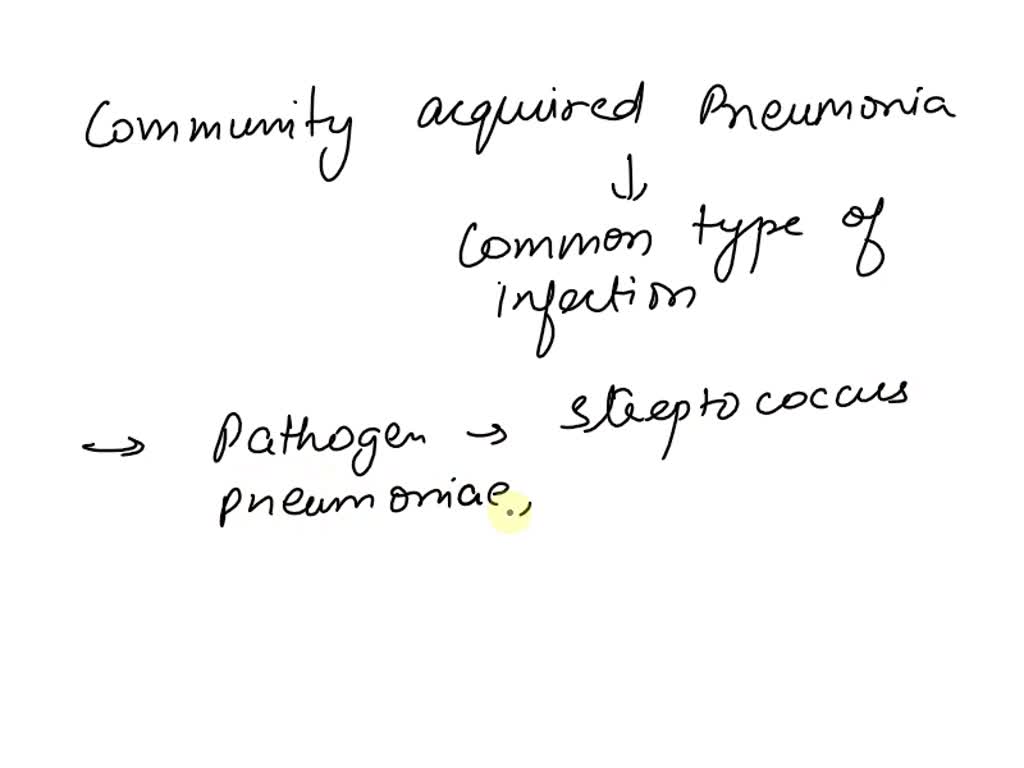 Community acquired Pneumonia
↓
Common type of
infection
→ Pathogen → Streptococcus
pneumoniae,